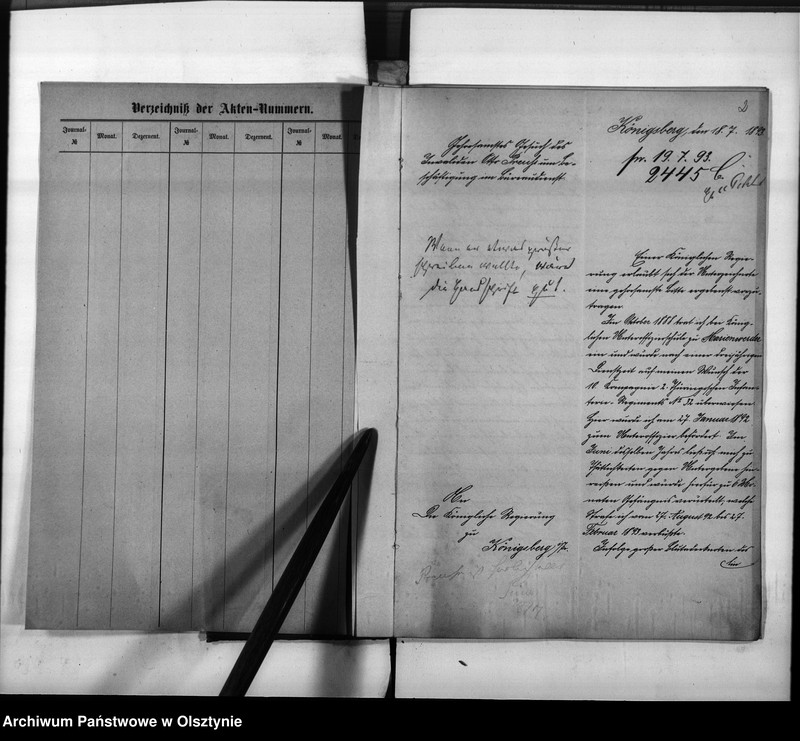 Verzeichniß der Akten-Nummern.
Journal-№ Monat. Dezernent. Journal-№ Monat. Dezernent. Journal-№ Monat.
2
Königsberg, den 18. 7. 1893
pr. 19. 7. 93.
2445 C
Gehorsamstes Gesuch des
Invaliden Otto um Be-
schäftigung im Büreaudienst.
Wenn er etwas größer
schreiben wollte, wäre
die Handschrift gut.
An
Die Königliche Regierung
zu
Königsberg i/Pr.
Einer Königlichen Regie-
rung erlaubt sich der Unterzeichnete
eine gehorsamste Bitte ergebenst vorzu-
tragen.
Im Oktober 1888 trat ich bei König-
lichen Unteroffizierschule zu Marienwerder
ein und wurde nach einer dreijährigen
Dienstzeit auf meinen Wunsch der
10. Kompagnie 2. Thüringischen Infan-
terie-Regiments № 32 überwiesen
Hier wurde ich am 27. Januar 1892
zum Unteroffizier befördert. Im
Juni desselben Jahres ließ ich mich zu
Thätlichkeiten gegen Untergebene hin-
reißen und wurde hierfür zu 6 Mo-
naten Gefängniß verurteilt, welche
Strafe ich vom 27. August 92 bis 27.
Februar 1893 verbüßte.
Infolge großer
Archiwum Państwowe w Olsztynie